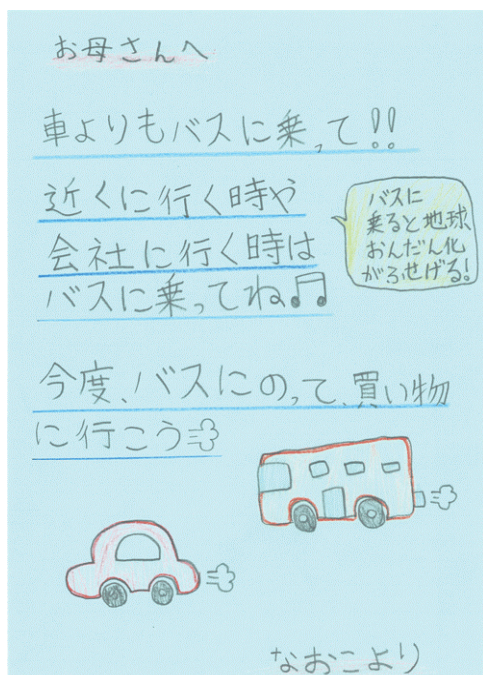 お母さんへ
車よりもバスに乗って!!
近くに行く時や
会社に行く時は
バスに乗ってね♫
バスに
乗ると地球
おんだん化
がふせげる!
今度、バスにのって、買い物
に行こう
なおこより